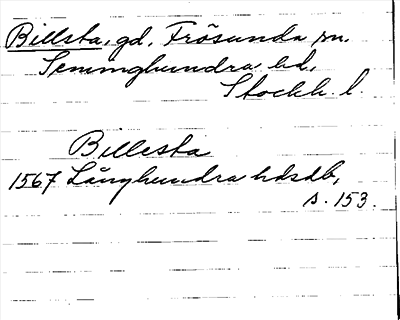 Billsta, gd, Frösunda sn.
Semminghundra hd,
Stockh. l.
Billesta
1567 Långhundra hdsdb,
s. 153.